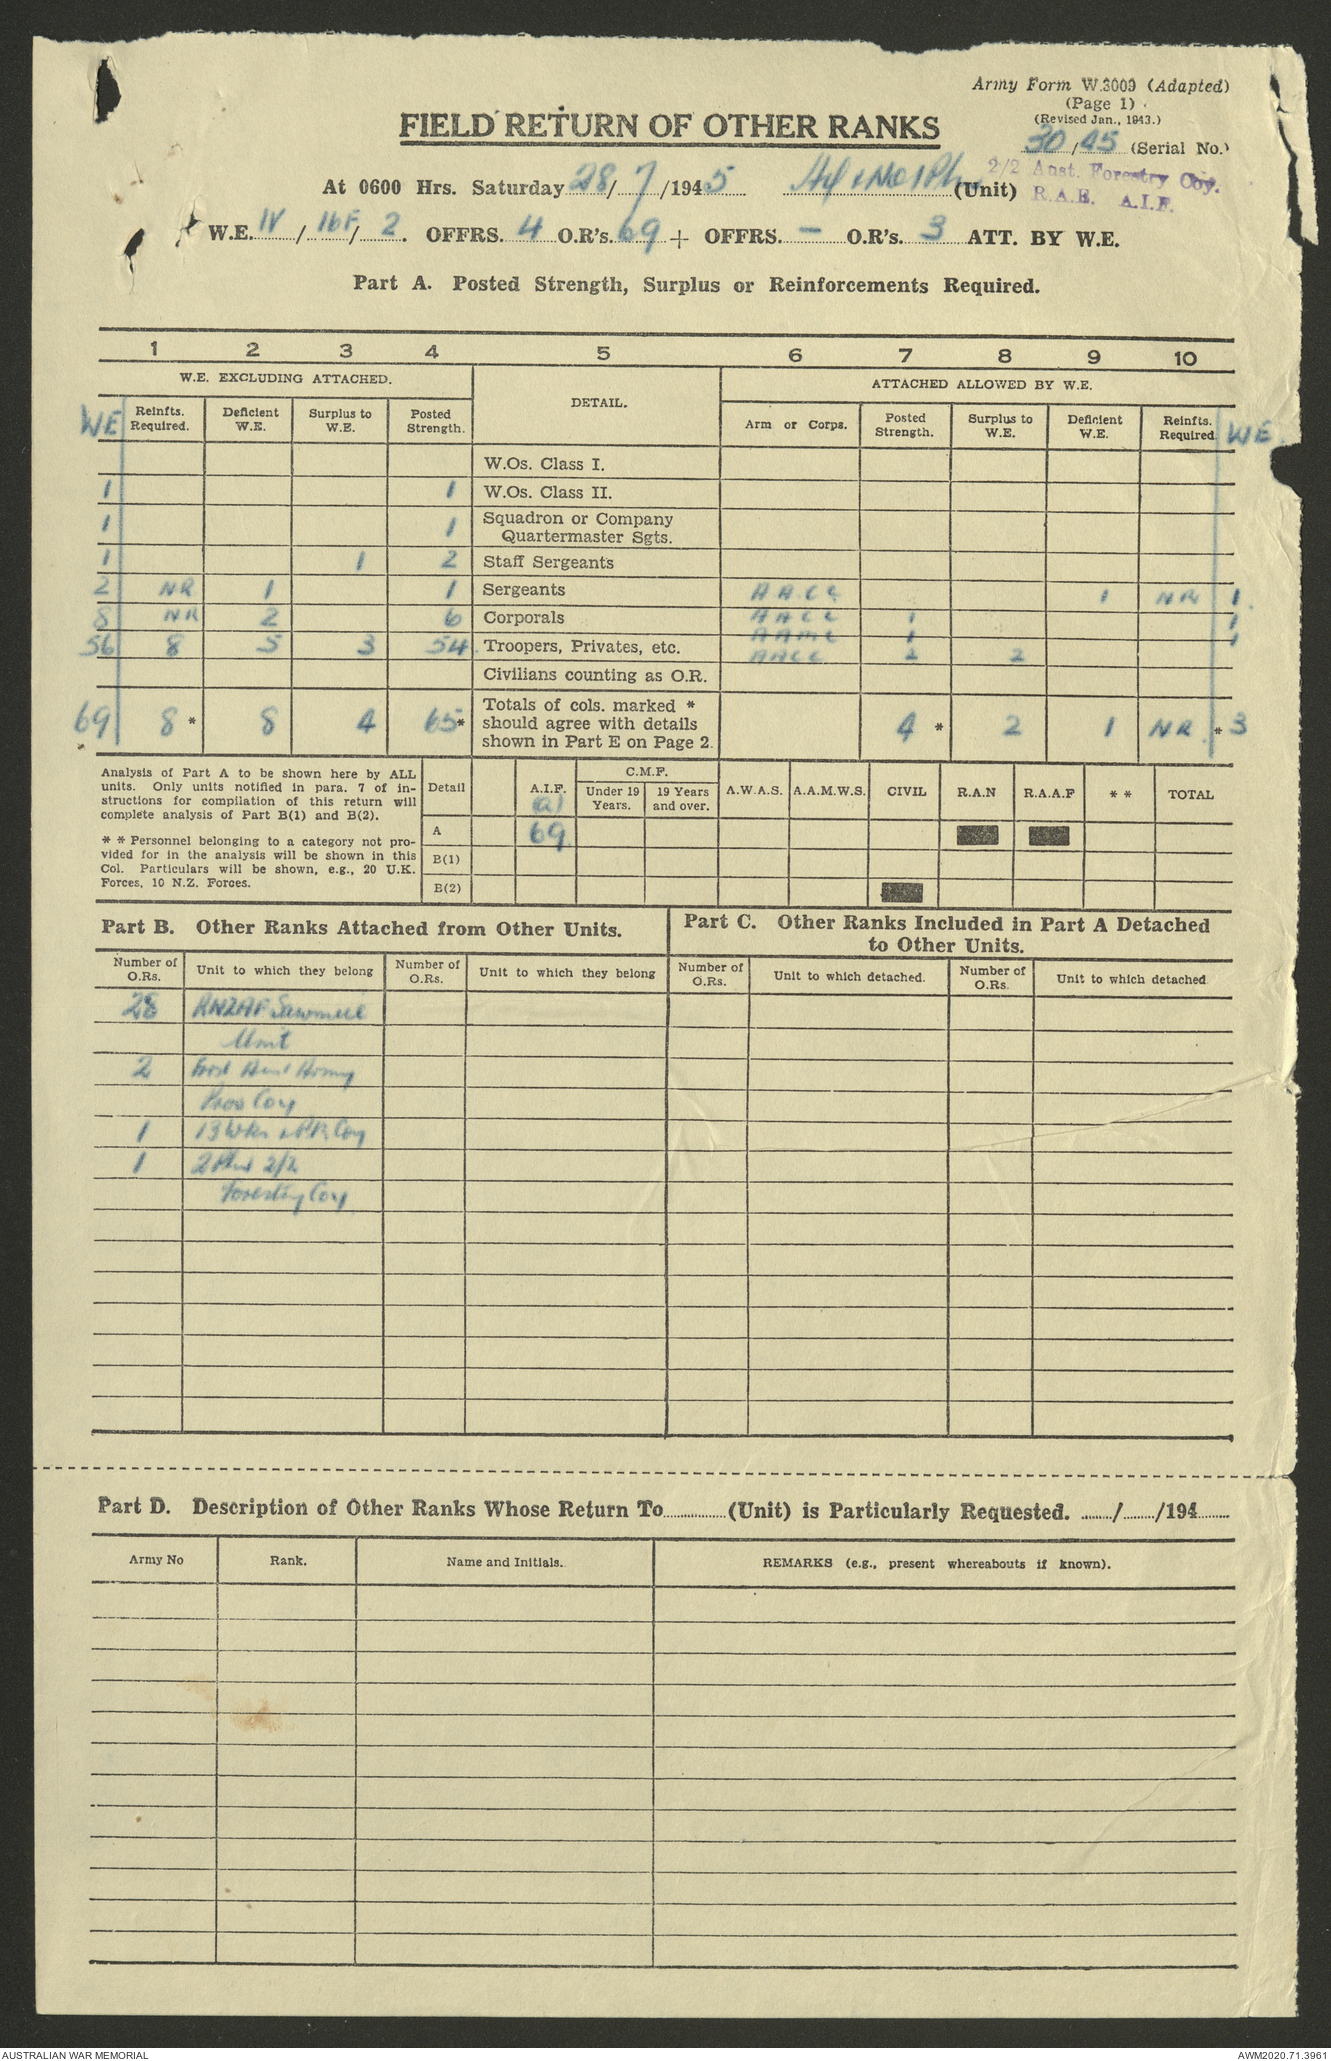 Army Form W.3009 (Adapted)
(Page 1)
(Revised Jan., 1943.)
FIELD RETURN OF OTHER RANKS
30/45 (Serial No.)
At 0600 Hrs. Saturday 28/7/1945 (Unit) 2/2 Aust. Forestry Coy.
R.A.E. A.I.F.
W.E. IV/16F/2. OFFRS. 4 O.R's. 69 + OFFRS. – O.R's. 3 ATT. BY W.E.
Part A. Posted Strength, Surplus or Reinforcements Required.
1 2 3 4 5 6 7 8 9 10
W.E. EXCLUDING ATTACHED. DETAIL. ATTACHED ALLOWED BY W.E.
WE Reinfts. Required. Deficient W.E. Surplus to W.E. Posted Strength. Arm or Corps. Posted Strength. Surplus to W.E. Deficient W.E. Reinfts. Required. WE
W.Os. Class I.
1 1 W.Os. Class II.
1 1 Squadron or Company
Quartermaster Sgts.
1 1 2 Staff Sergeants
2 NR 1 1 Sergeants AACC 1 NR 1
8 NR 2 6 Corporals AACC 1 1
AAMC 1 1
56 8 5 3 54 Troopers, Privates, etc. AACC 2 2
Civilians counting as O.R.
69 8* 8 4 65* Totals of cols. marked *
should agree with details
shown in Part E on Page 2. 4 * 2 1 NR * 3
Analysis of Part A to be shown here by ALL
units. Only units notified in para. 7 of in-
structions for compilation of this return will
complete analysis of Part B(1) and B(2).
* * Personnel belonging to a category not pro-
vided for in the analysis will be shown in this
Col. Particulars will be shown, e.g., 20 U.K.
Forces, 10 N.Z. Forces.
Detail A.I.F. (a) C.M.F. Under 19 Years. 19 Years and over. A.W.A.S. A.A.M.W.S. CIVIL R.A.N R.A.A.F * * TOTAL
A 69
B(1)
B(2)
Part B. Other Ranks Attached from Other Units.
Part C. Other Ranks Included in Part A Detached
to Other Units.
Number of O.Rs. Unit to which they belong Number of O.Rs. Unit to which they belong Number of O.Rs. Unit to which detached. Number of O.Rs. Unit to which detached
28 RNZAF Sawmill
Unit
2 Aust Army
Prov Coy
1 13 Wks Coy
1 2/2
Forestry Coy
Part D. Description of Other Ranks Whose Return To............(Unit) is Particularly Requested. ....../....../194......
Army No Rank. Name and Initials. REMARKS (e.g., present whereabouts if known).
AUSTRALIAN WAR MEMORIAL AWM2020.71.3961